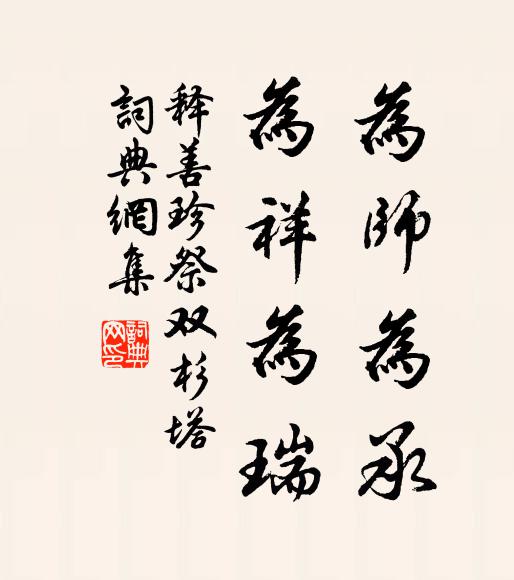 為師為承
為祥為瑞
释善珍祭双杉塔
詞典網集
詞典網印